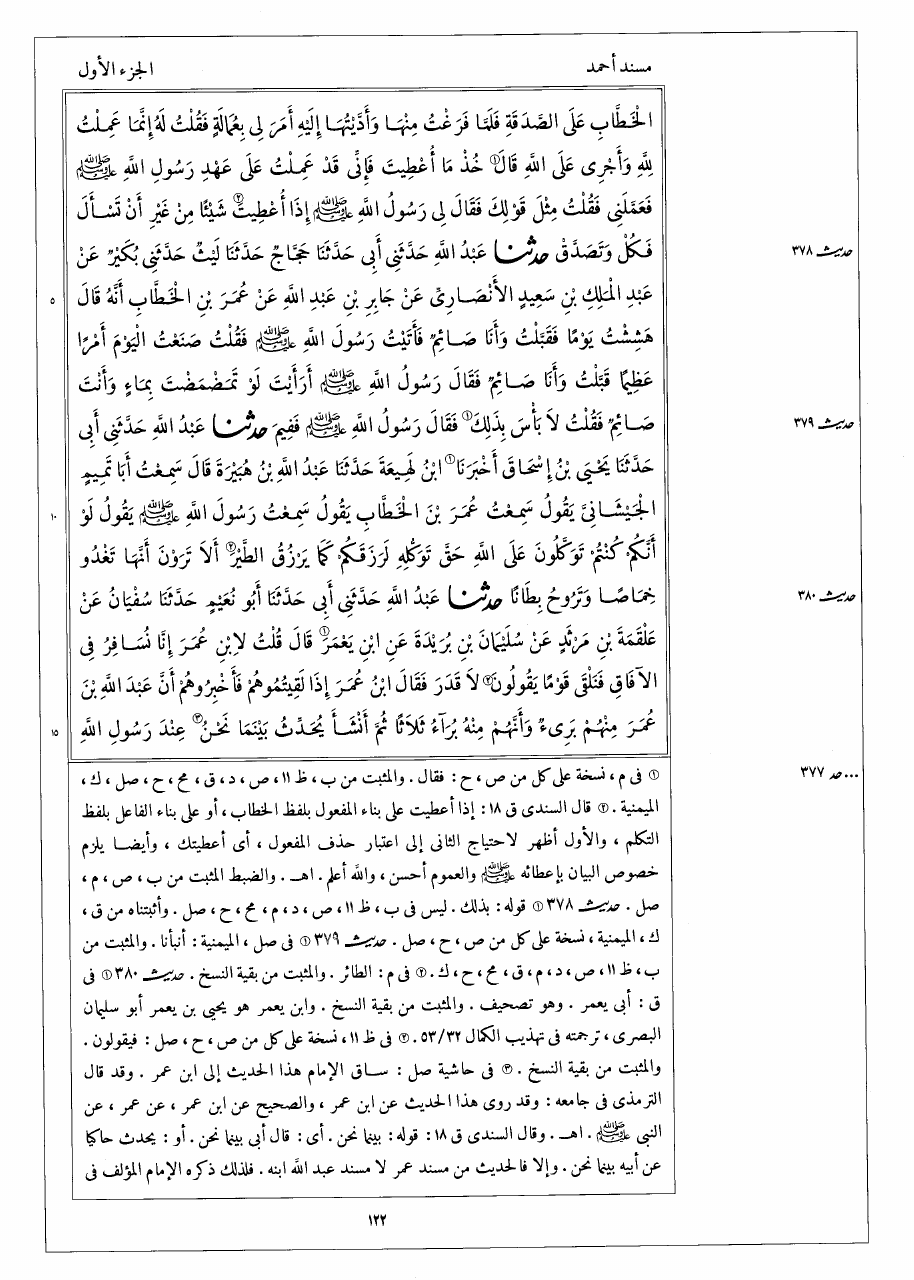 مسند أحمد الجزء الأول
الْخَطَّابِ عَلَى الصَّدَقَةِ فَلَمَّا فَرَغْتُ مِنْهَا وَأَدَّيْتُهَا إِلَيْهِ أَمَرَ لِى بِعُمَالَةٍ فَقُلْتُ لَهُ إِنَّمَا عَمِلْتُ
لِلَّهِ وَأَجْرِى عَلَى اللَّهِ قَالَ① خُذْ مَا أُعْطِيتَ فَإِنِّى قَدْ عَمِلْتُ عَلَى عَهْدِ رَسُولِ اللَّهِ ﷺ
فَعَمَّلَنِى فَقُلْتُ مِثْلَ قَوْلِكَ فَقَالَ لِى رَسُولُ اللَّهِ ﷺ إِذَا أُعْطِيتَ② شَيْئًا مِنْ غَيْرِ أَنْ تَسْأَلَ
حديث ٣٧٨ فَكُلْ وَتَصَدَّقْ حدثنا عَبْدُ اللَّهِ حَدَّثَنِى أَبِى حَدَّثَنَا حَجَّاجٌ حَدَّثَنَا لَيْثٌ حَدَّثَنِى بُكَيْرٌ عَنْ
عَبْدِ الْمَلِكِ بْنِ سَعِيدٍ الأَنْصَارِىِّ عَنْ جَابِرِ بْنِ عَبْدِ اللَّهِ عَنْ عُمَرَ بْنِ الْخَطَّابِ أَنَّهُ قَالَ ٥
هَشِشْتُ يَوْمًا فَقَبَّلْتُ وَأَنَا صَائِمٌ فَأَتَيْتُ رَسُولَ اللَّهِ ﷺ فَقُلْتُ صَنَعْتُ الْيَوْمَ أَمْرًا
عَظِيمًا قَبَّلْتُ وَأَنَا صَائِمٌ فَقَالَ رَسُولُ اللَّهِ ﷺ أَرَأَيْتَ لَوْ تَمَضْمَضْتَ بِمَاءٍ وَأَنْتَ
حديث ٣٧٩ صَائِمٌ فَقُلْتُ لاَ بَأْسَ بِذَلِكَ① فَقَالَ رَسُولُ اللَّهِ ﷺ فَفِيمَ حدثنا عَبْدُ اللَّهِ حَدَّثَنِى أَبِى
حَدَّثَنَا يَحْيَى بْنُ إِسْحَاقَ أَخْبَرَنَا① ابْنُ لَهِيعَةَ حَدَّثَنَا عَبْدُ اللَّهِ بْنُ هُبَيْرَةَ قَالَ سَمِعْتُ أَبَا تَمِيمٍ
الْجَيْشَانِىَّ يَقُولُ سَمِعْتُ عُمَرَ بْنَ الْخَطَّابِ يَقُولُ سَمِعْتُ رَسُولَ اللَّهِ ﷺ يَقُولُ لَوْ ١٠
أَنَّكُمْ كُنْتُمْ تَوَكَّلُونَ عَلَى اللَّهِ حَقَّ تَوَكُّلِهِ لَرَزَقَكُمْ كَمَا يَرْزُقُ الطَّيْرَ② أَلاَ تَرَوْنَ أَنَّهَا تَغْدُو
حديث ٣٨٠ خِمَاصًا وَتَرُوحُ بِطَانًا حدثنا عَبْدُ اللَّهِ حَدَّثَنِى أَبِى حَدَّثَنَا أَبُو نُعَيْمٍ حَدَّثَنَا سُفْيَانُ عَنْ
عَلْقَمَةَ بْنِ مَرْثَدٍ عَنْ سُلَيْمَانَ بْنِ بُرَيْدَةَ عَنِ ابْنِ يَعْمَرَ① قَالَ قُلْتُ لاِبْنِ عُمَرَ إِنَّا نُسَافِرُ فِى
الآفَاقِ فَنَلْقَى قَوْمًا يَقُولُونَ② لاَ قَدَرَ فَقَالَ ابْنُ عُمَرَ إِذَا لَقِيتُمُوهُمْ فَأَخْبِرُوهُمْ أَنَّ عَبْدَ اللَّهِ بْنَ
عُمَرَ مِنْهُمْ بَرِىءٌ وَأَنَّهُمْ مِنْهُ بُرَآءُ ثَلاَثًا ثُمَّ أَنْشَأَ يُحَدِّثُ بَيْنَمَا نَحْنُ③ عِنْدَ رَسُولِ اللَّهِ ١٥
...حد ٣٧٧ ① فى م ، نسخة على كل من ص ، ح : فقال . والمثبت من ب ، ظ ١١ ، ص ، د ، ق ، مح ، ح ، صل ، ك ،
الميمنية . ② قال السندى ق ١٨ : إذا أعطيت على بناء المفعول بلفظ الخطاب ، أو على بناء الفاعل بلفظ
التكلم ، والأول أظهر لاحتياج الثانى إلى اعتبار حذف المفعول ، أى أعطيتك ، وأيضا يلزم
خصوص البيان بإعطائه ﷺ والعموم أحسن ، والله أعلم . اهـ . والضبط المثبت من ب ، ص ، م ،
صل . حديث ٣٧٨ ① قوله : بذلك . ليس فى ب ، ظ ١١ ، ص ، د ، م ، مح ، ح ، صل . وأثبتناه من ق ،
ك ، الميمنية ، نسخة على كل من ص ، ح ، صل . حديث ٣٧٩ ① فى صل ، الميمنية : أنبأنا . والمثبت من
ب ، ظ ١١ ، ص ، د ، م ، ق ، مح ، ح ، ك . ② فى م : الطائر . والمثبت من بقية النسخ . حديث ٣٨٠ ① فى
ق : أبى يعمر . وهو تصحيف . والمثبت من بقية النسخ . وابن يعمر هو يحيى بن يعمر أبو سليمان
البصرى ، ترجمته فى تهذيب الكمال ٥٣/٣٢ . ② فى ظ ١١ ، نسخة على كل من ص ، ح ، صل : فيقولون .
والمثبت من بقية النسخ . ③ فى حاشية صل : ساق الإمام هذا الحديث إلى ابن عمر . وقد قال
الترمذى فى جامعه : وقد روى هذا الحديث عن ابن عمر ، والصحيح عن ابن عمر ، عن عمر ، عن
النبى ﷺ . اهـ . وقال السندى ق ١٨ : قوله : بينما نحن . أى : قال أبى بينما نحن . أو : يحدث حاكيا
عن أبيه بينما نحن . وإلا فالحديث من مسند عمر لا مسند عبد الله ابنه . فلذلك ذكره الإمام المؤلف فى
١٢٢